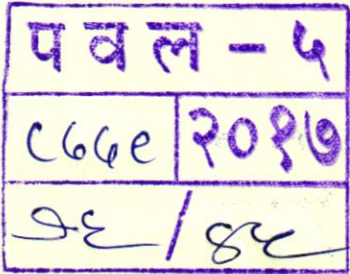 पवल - ५
८७७९ २०१७
१६/४५